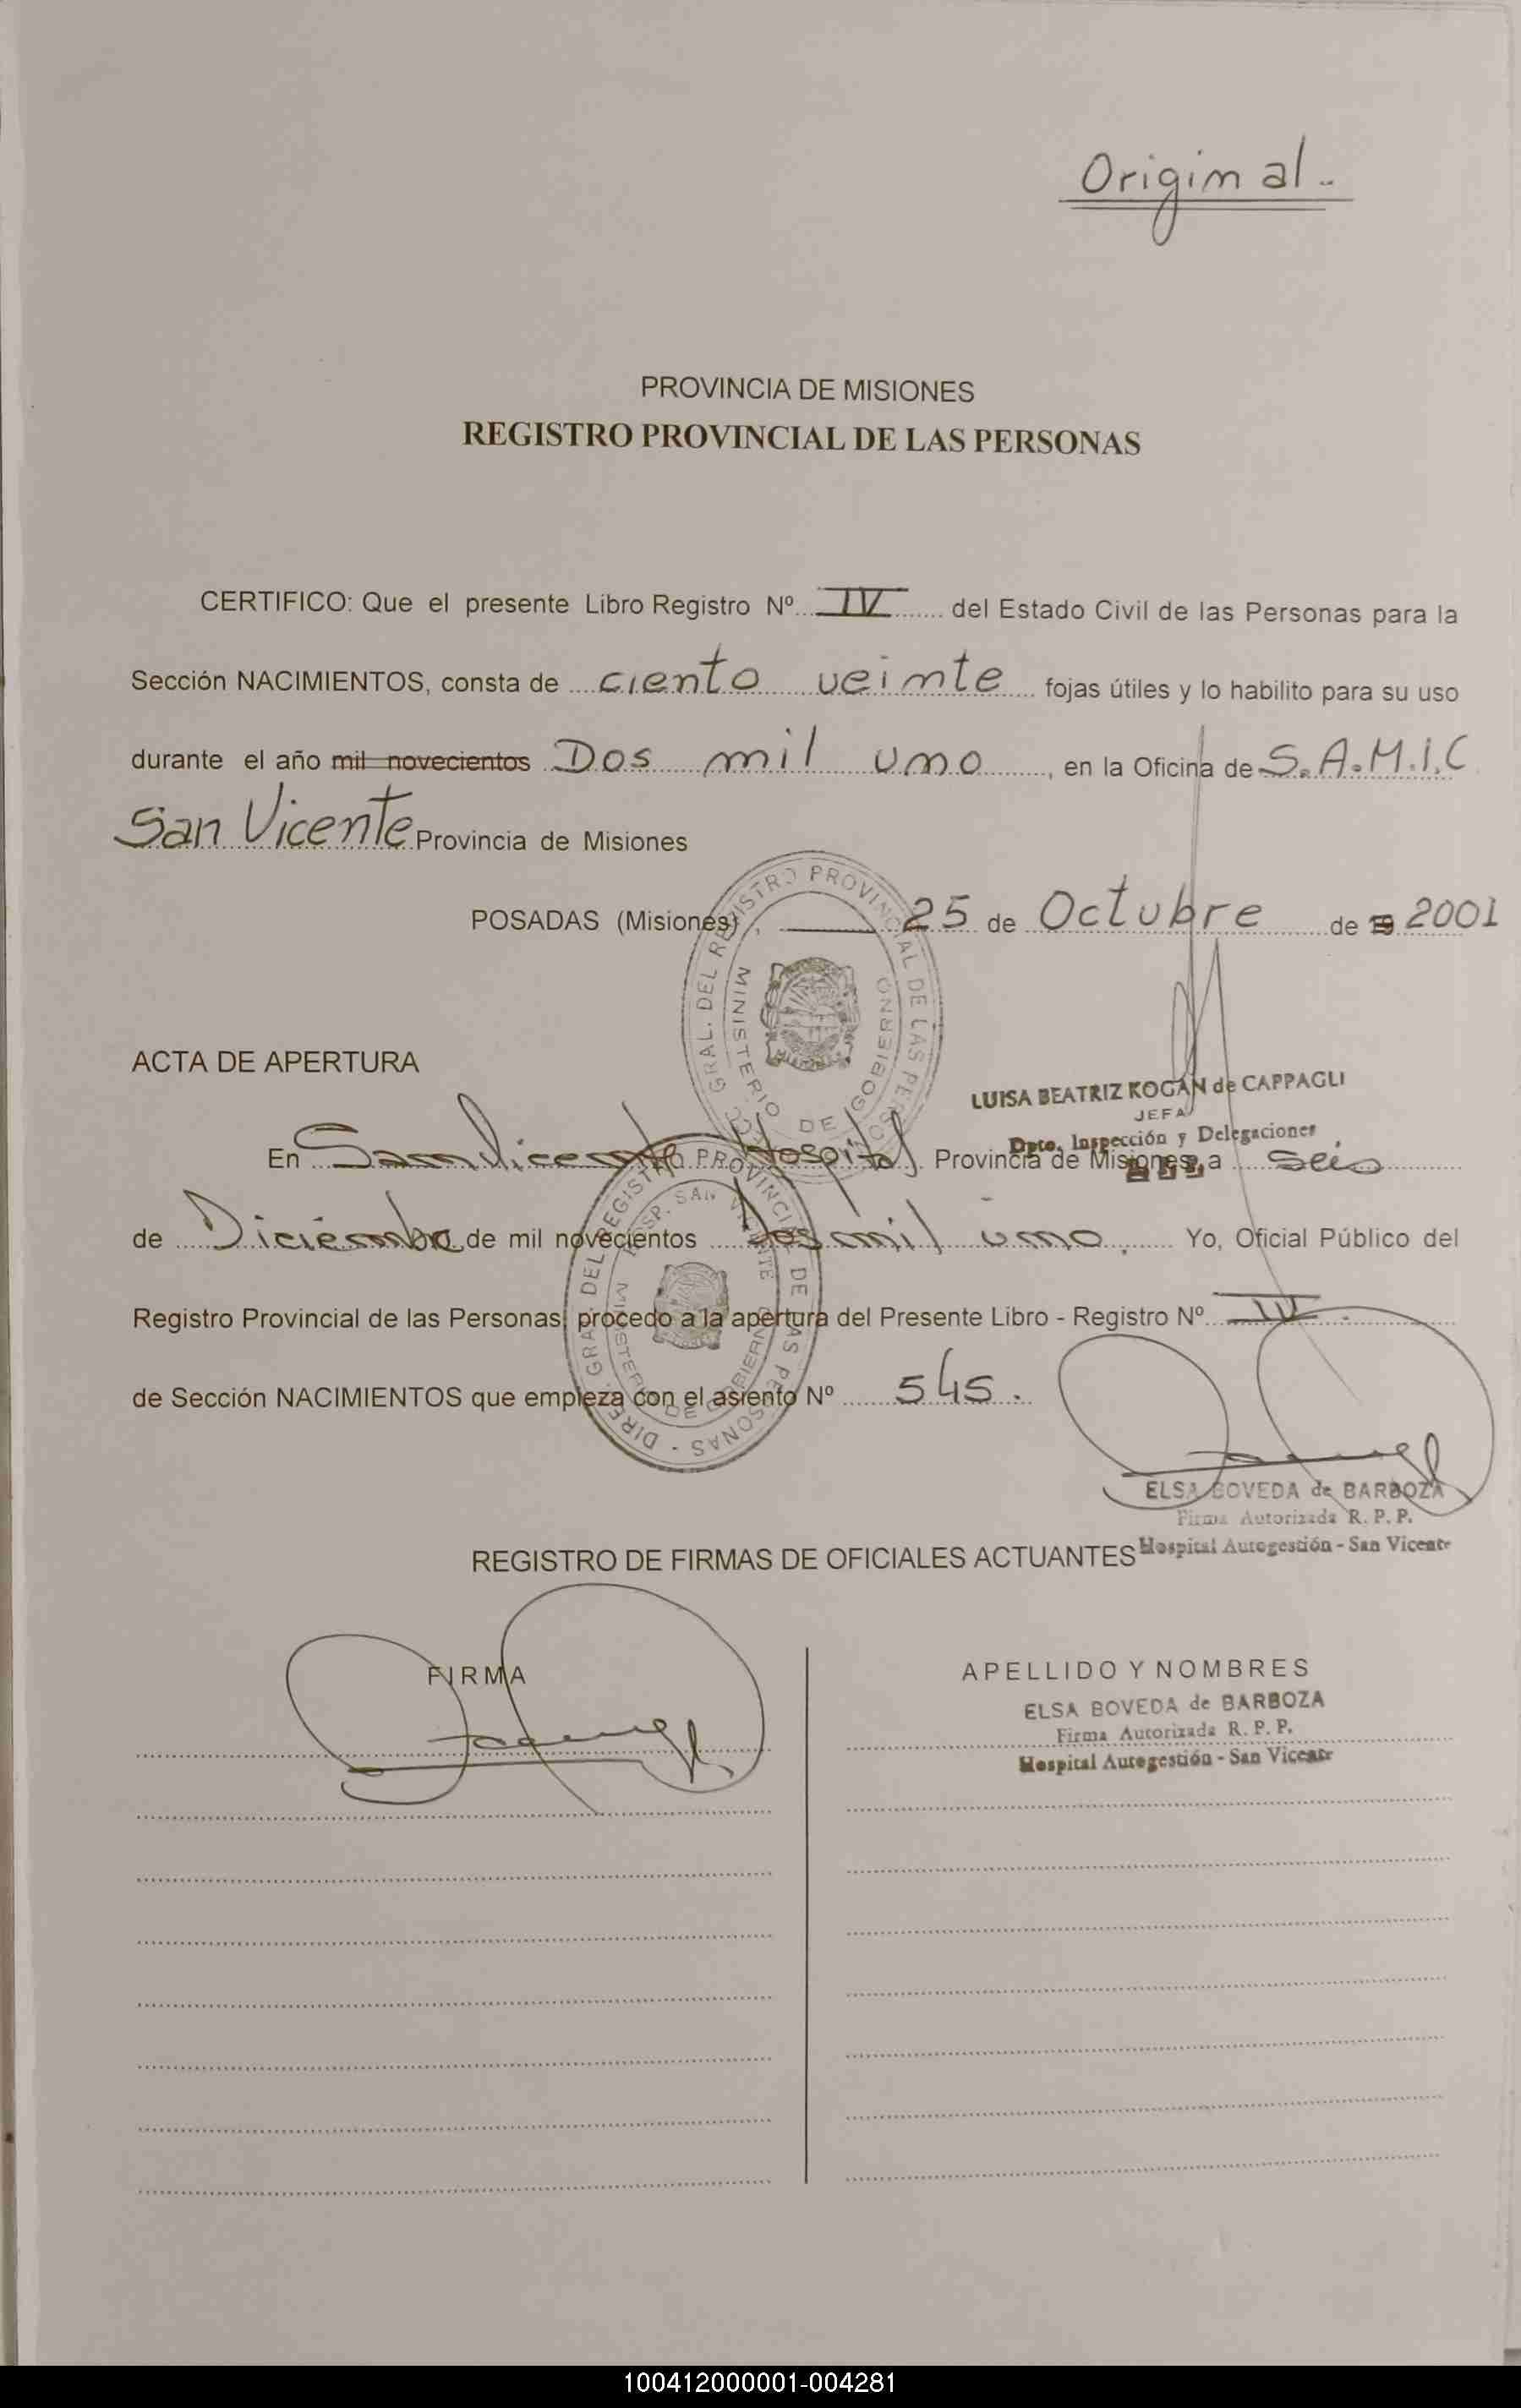 Original..
PROVINCIA DE MISIONES
REGISTRO PROVINCIAL DE LAS PERSONAS
CERTIFICO: Que el presente Libro Registro Nº IV del Estado Civil de las Personas para la
Sección NACIMIENTOS, consta de ciento veinte fojas útiles y lo habilito para su uso
durante el año mil novecientos Dos mil uno, en la Oficina de S.A.M.I.C
San Vicente Provincia de Misiones
POSADAS (Misiones), 25 de Octubre de 19 2001
ACTA DE APERTURA
LUISA BEATRIZ KOGAN de CAPPAGLI
JEFA
Dpto. Inspección y Delegaciones
En San Vicente Hospital Provincia de Misiones, a seis
de Diciembre de mil novecientos dos mil uno. Yo, Oficial Público del
Registro Provincial de las Personas, procedo a la apertura del Presente Libro - Registro Nº IV.
de Sección NACIMIENTOS que empieza con el asiento Nº 545.
ELSA BOVEDA de BARBOZA
Firma Autorizada R. P. P.
Hospital Autogestión - San Vicente
REGISTRO DE FIRMAS DE OFICIALES ACTUANTES
FIRMA
APELLIDO Y NOMBRES
ELSA BOVEDA de BARBOZA
Firma Autorizada R. P. P.
Hospital Autogestión - San Vicente
100412000001-004281